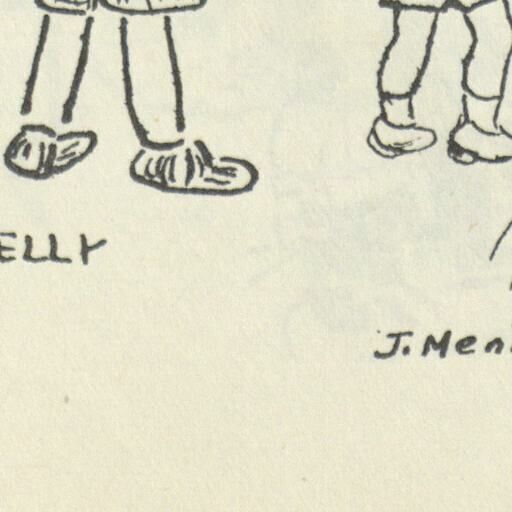 ELLY
J. Men